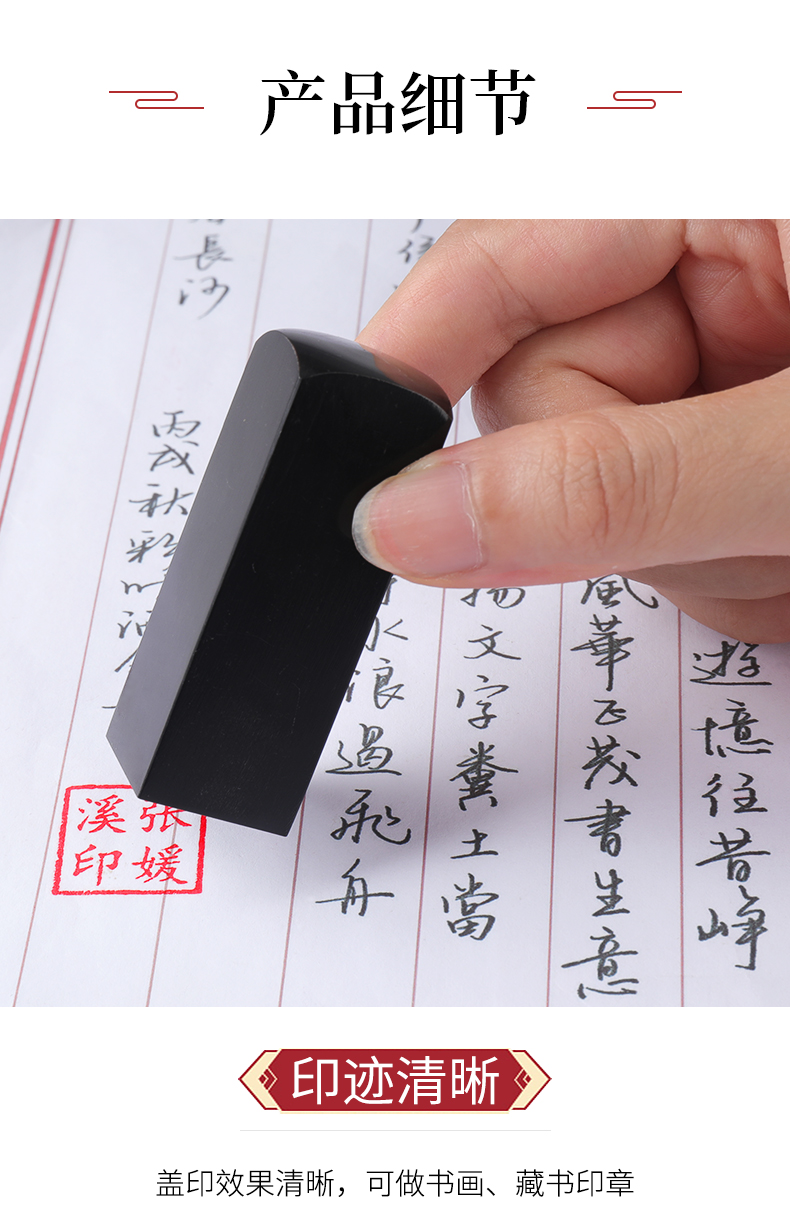 产品细节
遊憶往昔峥
風華正茂書生意
揚文字糞土當
水浪過飛舟
長沙
丙戌秋
张媛
溪印
印迹清晰
盖印效果清晰，可做书画、藏书印章